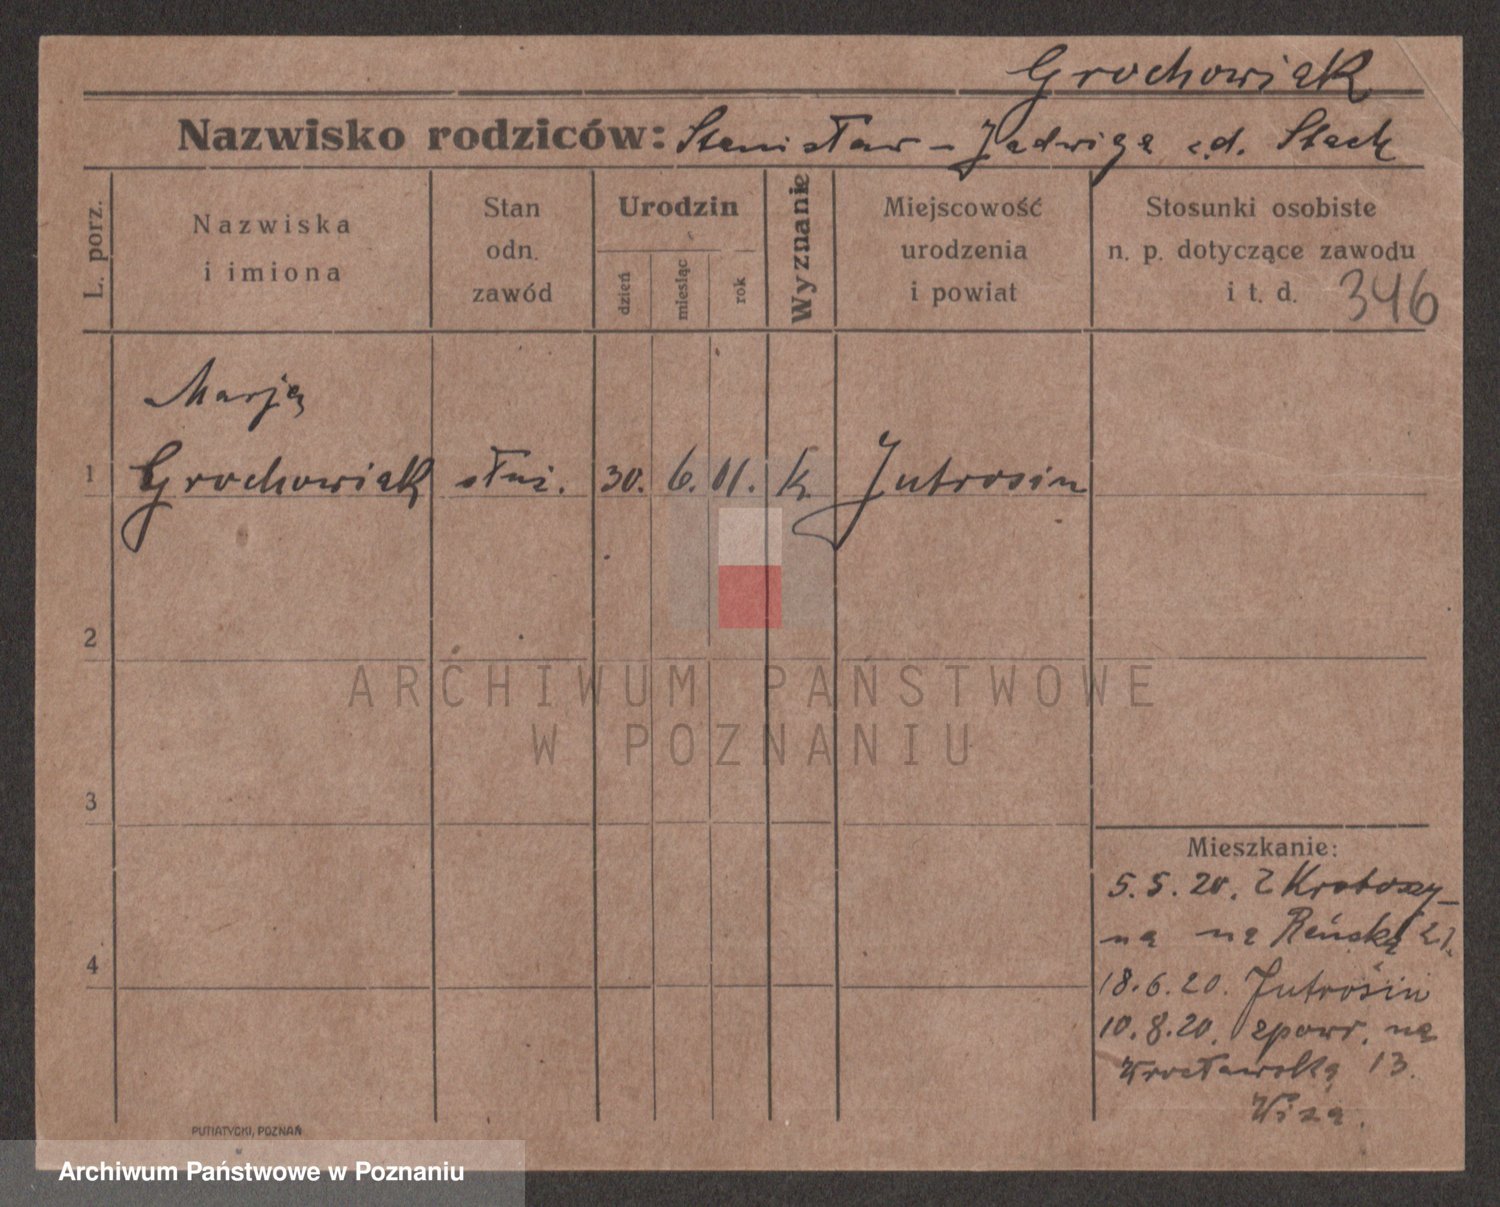 Grochowiak
Nazwisko rodziców: Stanisław - Jadwiga z.d. Stach
L. porz.
Nazwiska
i imiona
Stan
odn.
zawód
Urodzin
dzień
miesiąc
rok
Wyznanie
Miejscowość
urodzenia
i powiat
Stosunki osobiste
n. p. dotyczące zawodu
i t. d. 346
Marja
1 Grochowiak służ. 30. 6. 01. k. Jutrosin
2
ARCHIWUM PAŃSTWOWE
W POZNANIU
3
Mieszkanie:
5.5.20. Z Krotoszy-
na na Reńską 21.
4
18.6.20. Jutrosin
10.8.20. zpowr. na
Wrocławską 13.
PUTIATYCKI, POZNAŃ
Archiwum Państwowe w Poznaniu